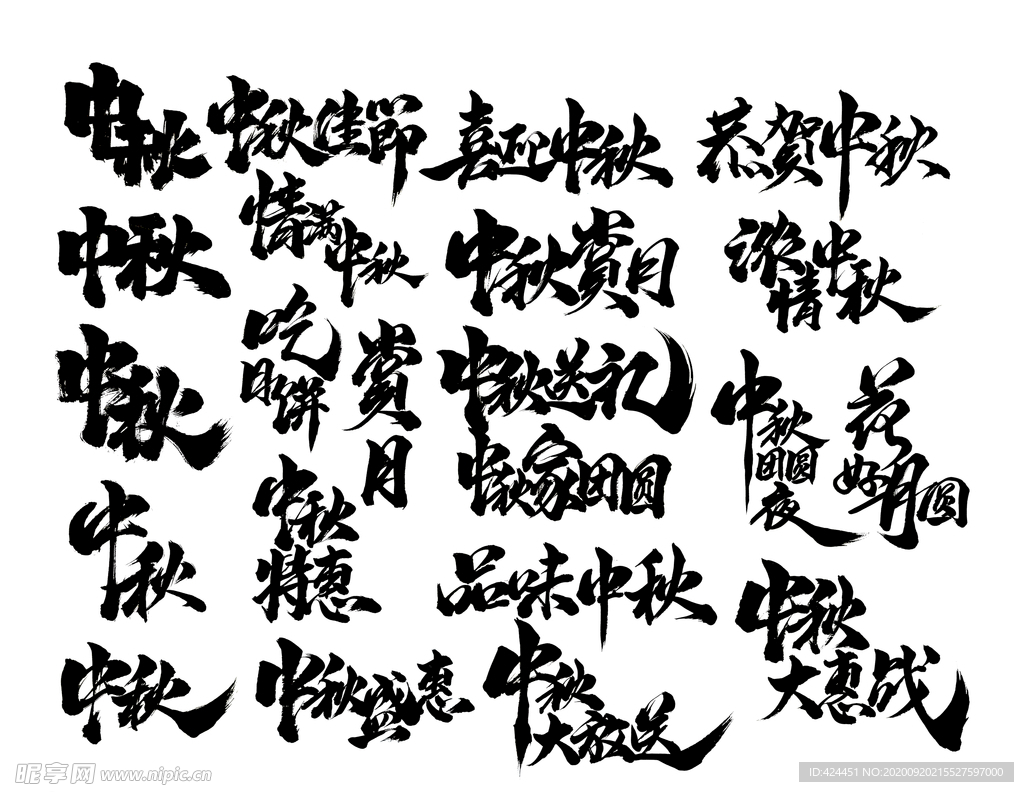 中秋
中秋佳節
喜迎中秋
恭贺中秋
中秋
情满
中秋
中秋赏月
浓情
中秋
中秋
吃
月饼
赏
月
中秋送礼
中秋
团圆
夜
花
好月圆
中秋
中秋
特惠
中秋家团圆
品味中秋
中秋
大惠战
中秋
中秋盛惠
中秋
大放送
昵享网 www.nipic.cn
ID:424451 NO:20200920215527597000